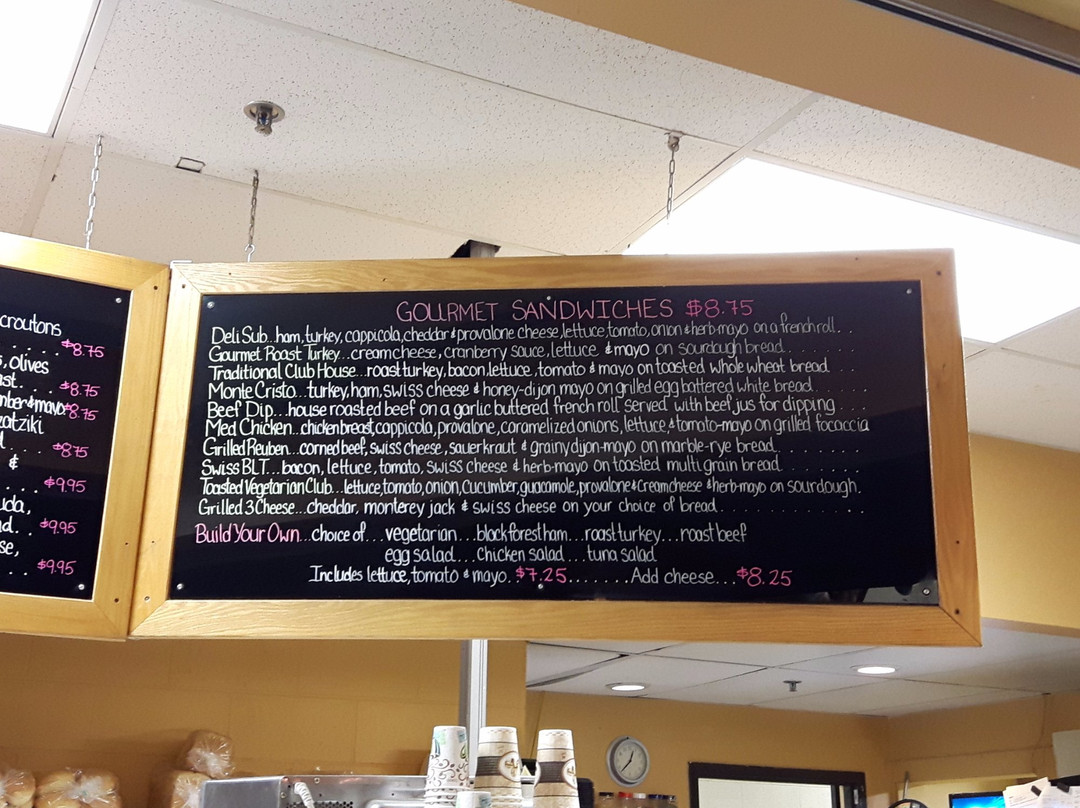 croutons
. . . . . $8.75
s, olives
ast. . . . . $8.75
mber & mayo $8.75
zatziki
d . . . $8.75
&
. . . $9.95
uda,
ad. . $9.95
se,
. . . $9.95
GOURMET SANDWICHES $8.75
Deli Sub...ham, turkey, cappicola, cheddar & provalone cheese, lettuce, tomato, onion & herb-mayo on a french roll. . .
Gourmet Roast Turkey...cream cheese, cranberry sauce, lettuce & mayo on sourdough bread. . . . . . . .
Traditional Club House....roast turkey, bacon, lettuce, tomato & mayo on toasted whole wheat bread. . . .
Monte Cristo....turkey, ham, swiss cheese & honey-dijon mayo on grilled egg battered white bread. . . . . .
Beef Dip....house roasted beef on a garlic buttered french roll served with beef jus for dipping. . . .
Med Chicken...chicken breast, cappicola, provalone, caramelized onions, lettuce, & tomato-mayo on grilled focaccia
Grilled Reuben...corned beef, swiss cheese, sauerkraut & grainy dijon-mayo on marble-rye bread. . . . . . . .
Swiss BLT....bacon, lettuce, tomato, swiss cheese & herb-mayo on toasted multi grain bread. . . . . . . .
Toasted Vegetarian Club....lettuce, tomato, onion, cucumber, guacamole, provalone & Cream cheese & herb-mayo on sourdough.
Grilled 3 Cheese....cheddar, monterey jack & swiss cheese on your choice of bread. . . . . . . . . . . . .
Build Your Own...choice of...vegetarian...black forest ham...roast turkey...roast beef
egg salad....chicken salad....tuna salad
Includes lettuce, tomato & mayo. $7.25.......Add cheese...$8.25